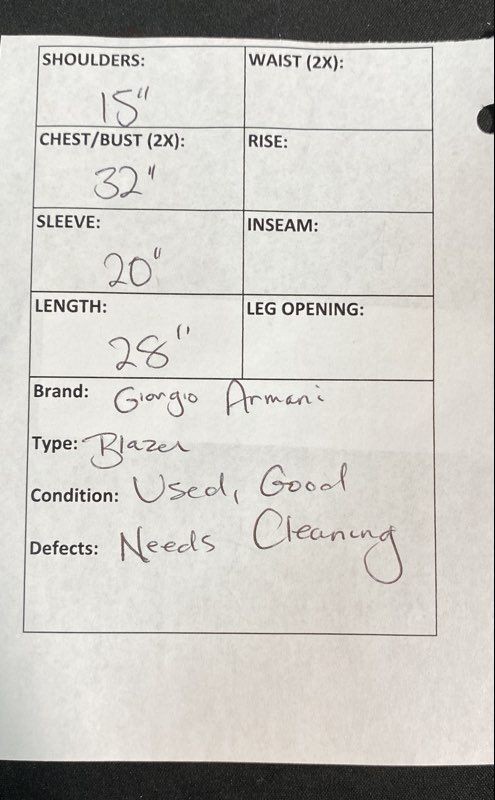 SHOULDERS: WAIST (2X):
15"
CHEST/BUST (2X): RISE:
32"
SLEEVE: INSEAM:
20"
LENGTH: LEG OPENING:
28"
Brand: Giorgio Armani
Type: Blazer
Condition: Used, Good
Defects: Needs Cleaning